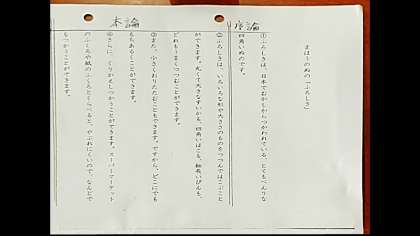 序論
本論
まほうのぬの「ふろしき」
①ふろしきは、日本でむかしからつかわれている、とてもべんりな
四角いぬのです。
②ふろしきは、いろいろな形や大きさのものをつつんではこぶこと
ができます。丸くて大きなすいかも、四角いはこも、細長いびんも、
どれもうまくつつむことができます。
③また、小さくおりたたむこともできます。ですから、どこにでも
もちあるくことができます。
④さらに、くりかえしつかうことができます。スーパーマーケット
のふくろや紙のふくろとくらべると、やぶれにくいので、なんどで
もつかうことができます。